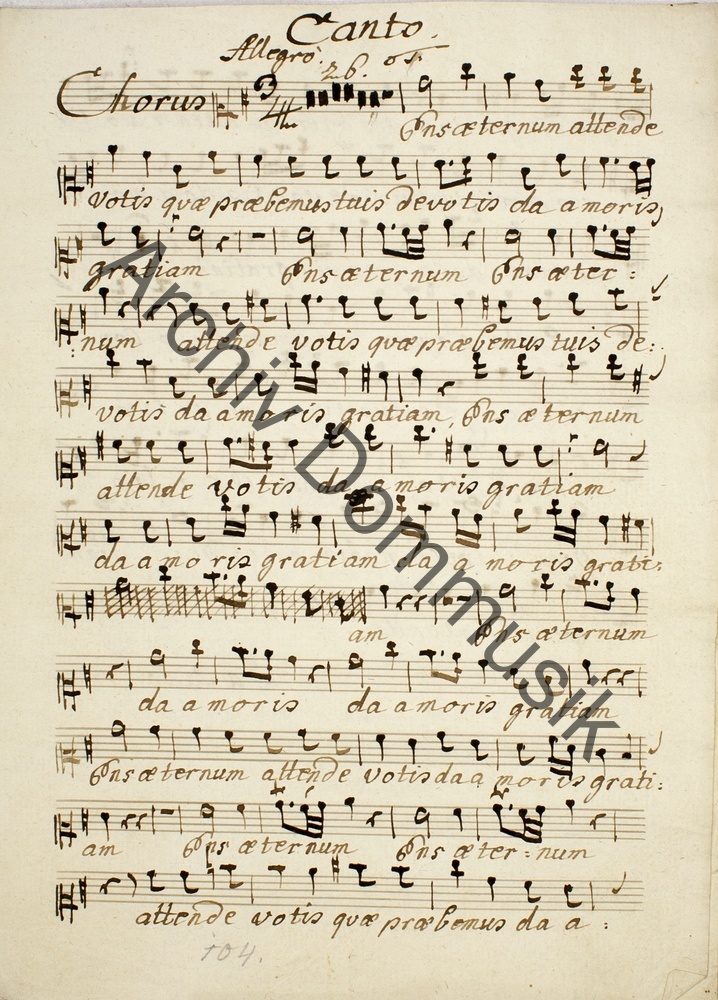 Canto.
Allegrò.
26.
Chorus
Ens æternum attende
votis quæ præbemus tuis devotis da amoris
gratiam Ens æternum Ens æter:
:num attende votis quæ præbemus tuis de:
votis da amoris gratiam, Ens æternum
attende votis da amoris gratiam
da amoris gratiam da amoris grati:
am Ens æternum
da amoris da amoris gratiam
Ens æternum attende votis da amoris grati:
am Ens æternum Ens æter:num
attende votis quæ præbemus da a:
104.
Archiv Dommusik